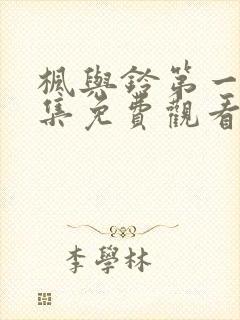 楓與鈴第一
集免費觀看
李學林